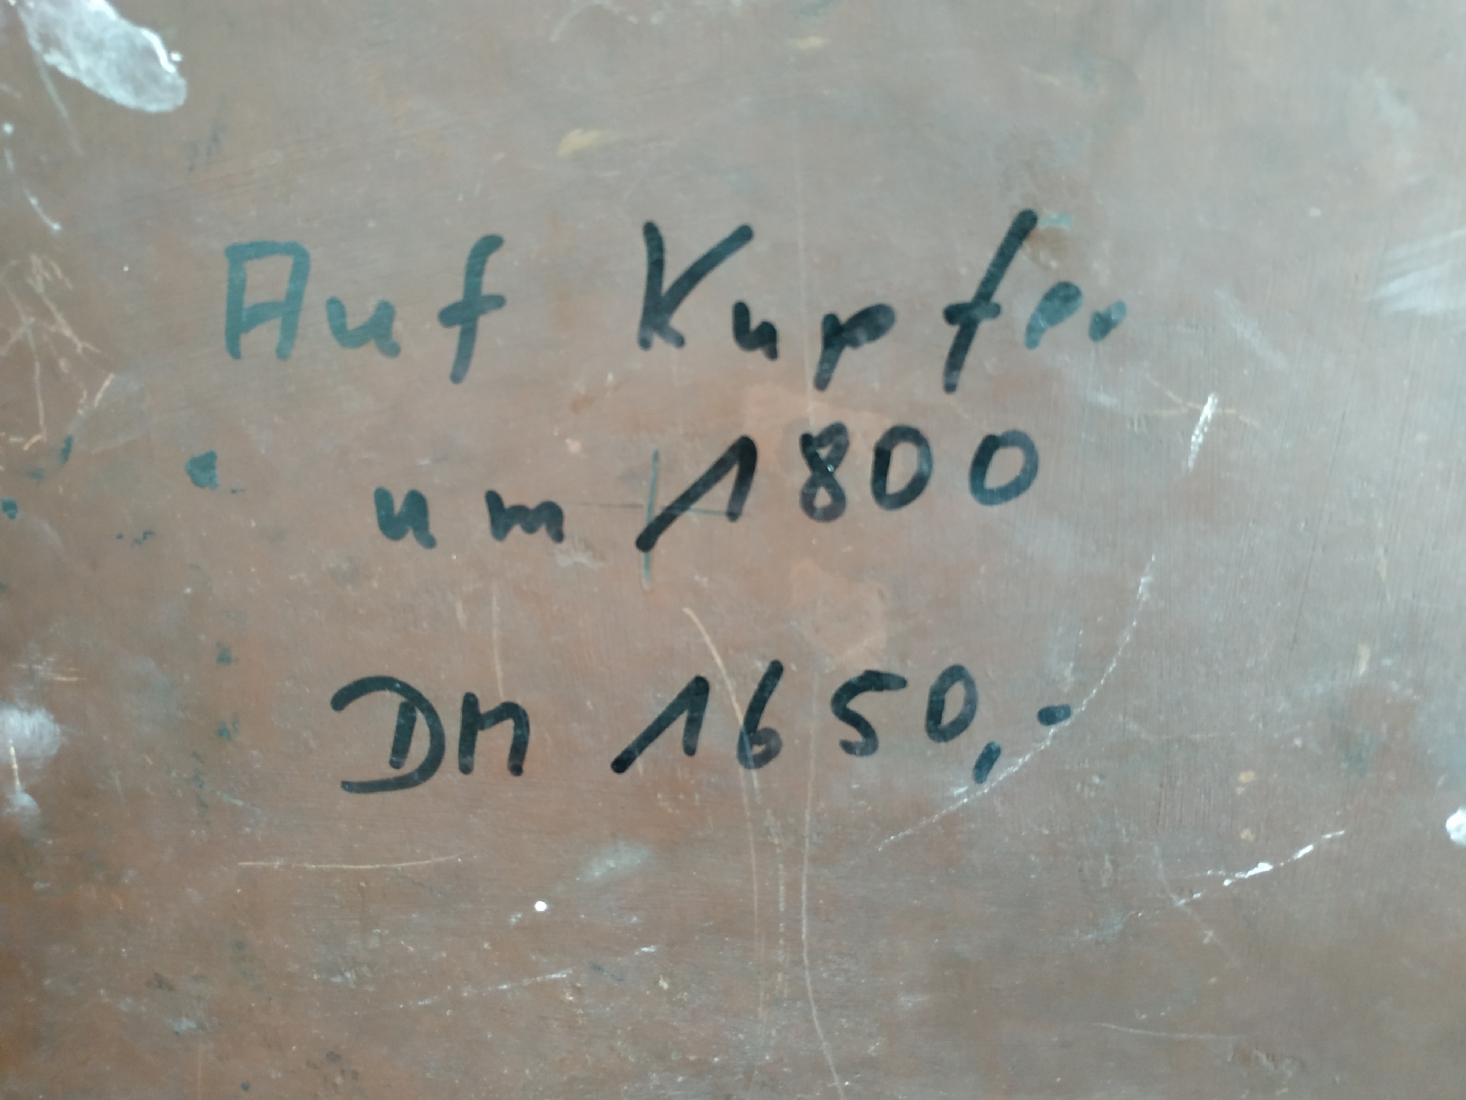 Auf Kupfer
um 1800
DM 1650,-